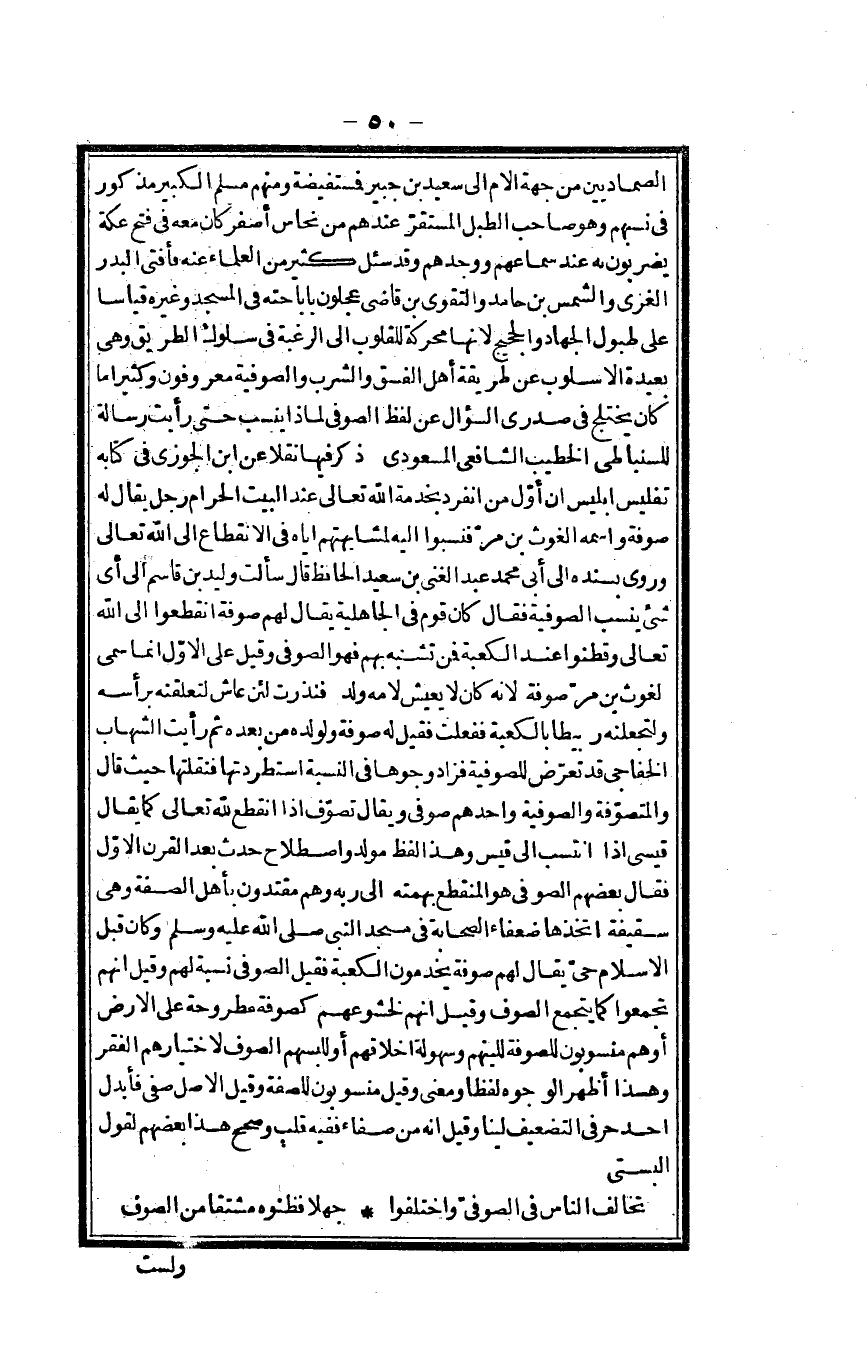 - ٥٠ -
الصماديين من جهة الام الى سعيد بن جبير فستفيضة ومنهم مسلم الكبير مذكور
فى نسبهم وهو صاحب الطبل المستقر عندهم من نحاس أصفر كان معه فى فتح عكة
يضربون به عند سماعهم ووجدهم وقد سئل كثير من العلماء عنه فأفتى البدر
الغزى والشمس بن حامد والتقوى بن قاضى عجلون باباحته فى المسجد وغيره قياسا
على طبول الجهاد والحجيج لانها محركة للقلوب الى الرغبة فى سلوك الطريق وهى
بعيدة الاسلوب عن طريقة أهل الفسق والشرب والصوفية معروفون وكثيرا ما
كان يختلج فى صدرى السؤال عن لفظ الصوفى لماذا ينسب حتى رأيت رسالة
للسنباطى الخطيب الشافعى المسعودى ذكر فيها نقلا عن ابن الجوزى فى كتابه
تفليس ابليس ان أوّل من انفرد بخدمة الله تعالى عند البيت الحرام رجل يقال له
صوفة واسمه الغوث بن مرّ فنسبوا اليه لمشابهتهم اياه فى الانقطاع الى الله تعالى
وروى بسنده الى أبى محمد عبد الغنى بن سعيد الحافظ قال سألت وليد بن قاسم الى أى
شئ ينسب الصوفية فقال كان قوم فى الجاهلية يقال لهم صوفة انقطعوا الى الله
تعالى وقطنوا عند الكعبة فمن تشبه بهم فهو الصوفى وقيل على الاوّل انما سمى
لغوث بن مرّ صوفة لانه كان لا يعيش لامه ولد فنذرت لئن عاش لتعلقنه برأسه
ولتجعلنه ربيطا بالكعبة ففعلت فقيل له صوفة ولولده من بعده ثم رأيت الشهاب
الخفاجى قد تعرّض للصوفية فزاد وجوها فى النسبة استطردتها فنقلتها حيث قال
والمتصوّفة والصوفية واحدهم صوفى ويقال تصوّف اذا انقطع لله تعالى كما يقال
قيسى اذا انتسب الى قيس وهذا الفظ مولد واصطلاح حدث بعد القرن الاوّل
فقال بعضهم الصوفى هو المنقطع بهمته الى ربه وهم مقتدون بأهل الصفة وهى
سقيفة اتخذها ضعفاء الصحابة فى مسجد النبى صلى الله عليه وسلم وكان قبل
الاسلام حىّ يقال لهم صوفة يخدمون الكعبة فقيل الصوفى نسبة لهم وقيل انهم
تجمعوا كما يتجمع الصوف وقيل انهم لخشوعهم كصوفة مطروحة على الارض
أوهم منسوبون للصوفة للينهم وسهولة اخلاقهم أو للبسهم الصوف لاختيارهم الفقر
وهذا أظهر الوجوه لفظا ومعنى وقيل منسوبون للصفة وقيل الاصل صفى فأبدل
احد حرفى التضعيف لينا وقيل انه من صفاء ففيه قلب وصحح هذا بعضهم لقول
البستى
تخالف الناس فى الصوفىّ واختلفوا * جهلا فظنوه مشتقا من الصوف
ولست